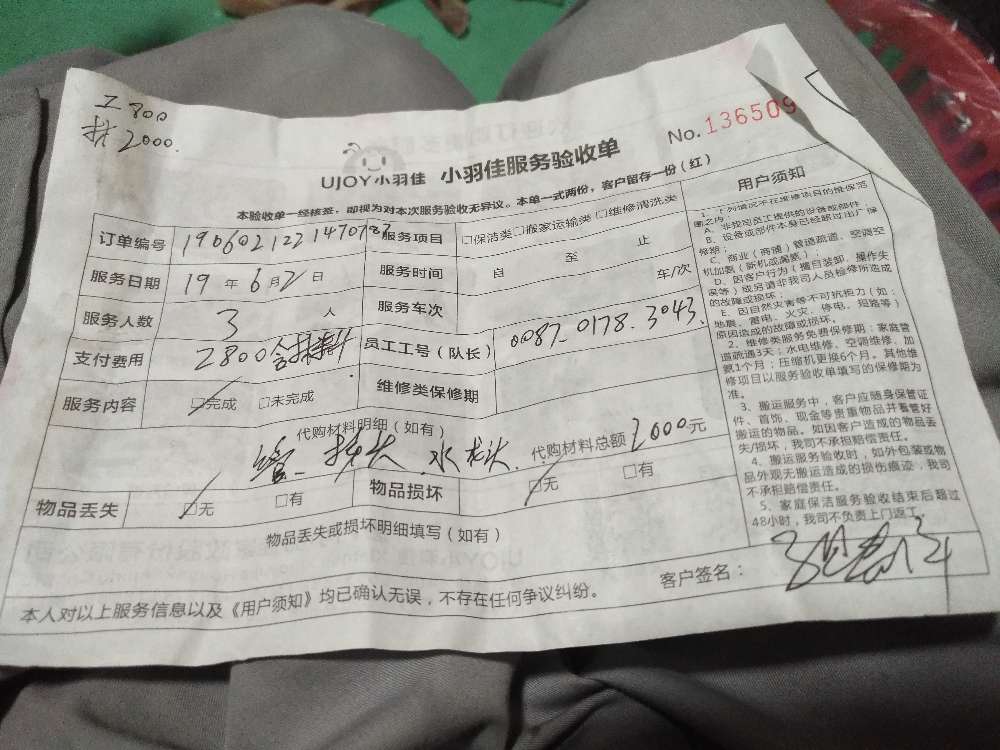 工 800
材 2000.
No. 136509
UJOY小羽佳 小羽佳服务验收单
本验收单一经核签，即视为对本次服务验收无异议。本单一式两份，客户留存一份（红）
订单编号 190602122147078 服务项目 □保洁类□搬家运输类 □维修清洗类
服务日期 19年6月2日 服务时间 自 至 止
服务人数 3 人 服务车次 车/次
支付费用 2800含材料 员工工号（队长） 0087.0178.3043.
服务内容 □完成 □未完成 维修类保修期
代购材料明细（如有）
管 接头 水龙头. 代购材料总额 2000元
物品丢失 □无 □有 物品损坏 □无 □有
物品丢失或损坏明细填写（如有）
本人对以上服务信息以及《用户须知》均已确认无误，不存在任何争议纠纷。
客户签名：
用户须知
1、下列情况不在维修项目的维保范
围之内：
A、非我司员工提供的设备或部件
B、设备或部件本身已经超过出厂保
修期；
C、商业（商铺）管道疏通、空调空
机加氨（新机或漏氨）
D、因客户行为（擅自装卸、操作失
误等）或另请非我司人员检修所造成
的故障或损坏；
E、因自然灾害等不可抗拒力（如：
地震、雷电、火灾、停电、短路等）
原因造成的故障或损坏。
2、维修类服务免费保修期：家庭管
道疏通3天；水电维修、空调维修、加
氨1个月；压缩机更换6个月。其他维
修项目以服务验收单填写的保修期为
准。
3、搬运服务中，客户应随身保管证
件、首饰、现金等贵重物品并看管好
搬运的物品。如因客户造成的物品丢
失/损坏，我司不承担赔偿责任。
4、搬运服务验收时，如外包装或物
品外观无搬运造成的损伤痕迹，我司
不承担赔偿责任。
5、家庭保洁服务验收结束后超过
48小时，我司不负责上门返工。